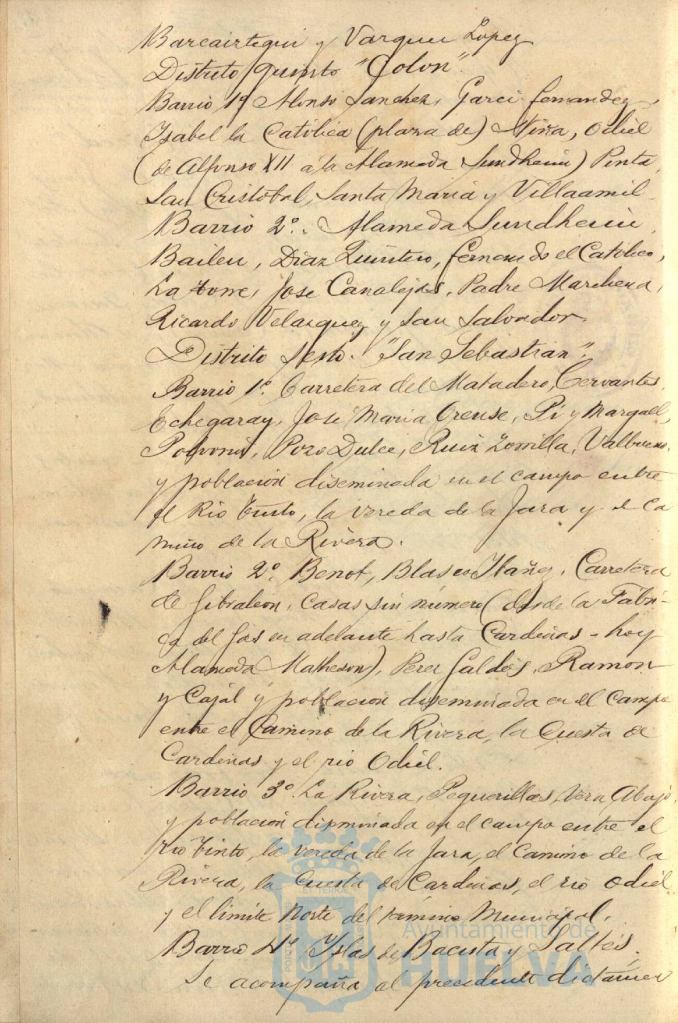 Barcaiztegui y Vazquez Lopez
Distrito quinto "Colon".
Barrio 1º Alonso Sanchez, Garci Fernandez,
Ysabel la Católica (plaza de) Niña, Odiel
(de Alfonso XII a la Alameda Sundheim) Pinta,
San Cristobal, Santa Maria y Villaamil.
Barrio 2º. Alameda Sundheim,
Bailen, Diaz Quintero, Fernando el Católico,
La Torre, Jose Canalejas, Padre Marchena,
Ricardo Velazquez y San Salvador.
Distrito Sesto. "San Sebastian".
Barrio 1º. Carretera del Matadero, Cervantes,
Echegaray, Jose Maria Orense, Pi y Margall,
Pozo Dulce, Ruiz Zorrilla, Valbueno
y población diseminada en el campo entre
el Rio Tinto, la vereda de la Jara y el ca
mino de la Rivera.
Barrio 2º. Benot, Blasco Ybañez, Carretera
de Gibraleon, casas sin número (desde la Fábri-
ca del Gas en adelante hasta Cardeñas - hoy
Alameda Matheson), Perez Galdós, Ramon
y Cajál y población diseminada en el campo
entre el Camino de la Rivera, la Cuesta de
Cardeñas y el rio Odiel.
Barrio 3º. La Rivera, Pequerillas, Vera Abajo,
y población diseminada en el campo entre el
Rio Tinto, la vereda de la Jara, el Camino de la
Rivera, la Cuesta de Cardeñas, el rio Odiel
y el límite Norte del término Municipal.
Barrio 4º Yslas de Bacuta y Saltés.
Se acompaña al precedente dictamen
Ayuntamiento de
HUELVA